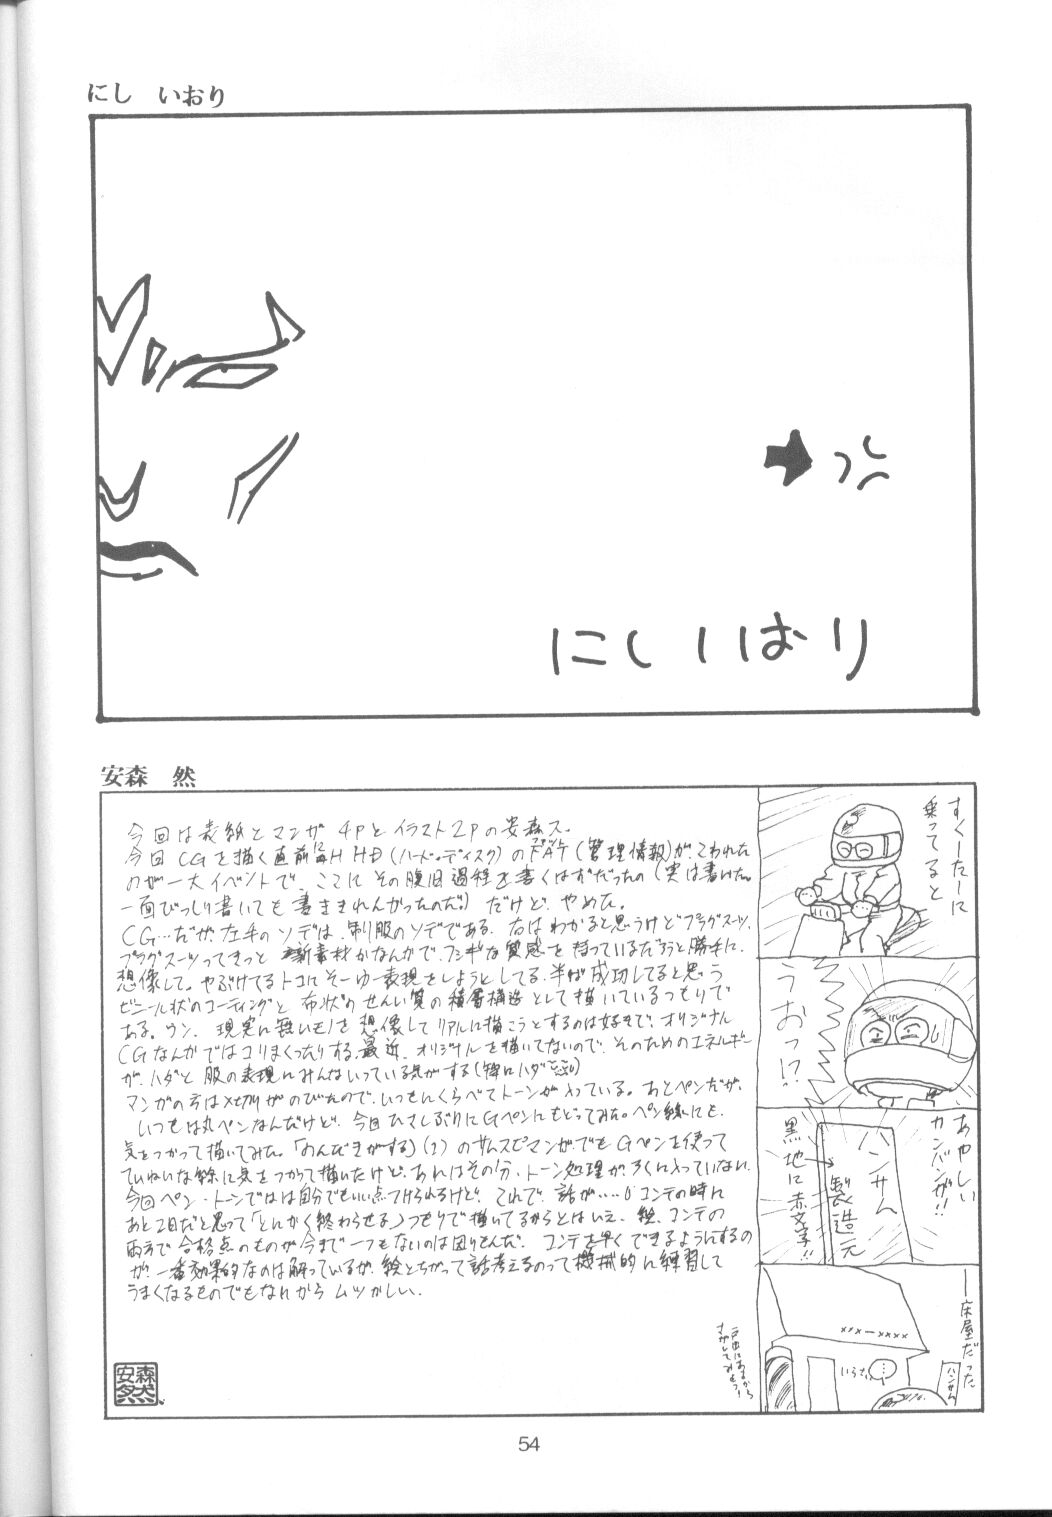 にし いおり
にしいおり
安森 然
今回は表紙とマンガ4Pとイラスト2Pの安森ス。
今回CGを描く直前にHD(ハード・ディスク)のFAT(管理情報)がこわれた
のが一大イベントで、ここにその復旧過程を書くはずだったの(実は書いた。
一面びっしり書いても書ききれんかったのだ。)だけど、やめた。
CG…だが、左手のソデは、制服のソデである。右はわかると思うけどプラグスーツ。
プラグスーツってきっと新素材かなんかで、フシギな質感を持っているだろうと勝手に
想像して。やぶけてるトコにそーゆー表現をしようとしてる。半ば成功してると思う
ビニール状のコーティングと布状のせんい質の積層構造として描いているつもりで
ある。ウン、現実に無いモノを想像してリアルに描こうとするのは好きで、オリジナル
CGなんかではコリまくったりする。最近、オリジナルを描いてないので、そのためのエネルギー
が、ハダと服の表現にみんないっている気がする(特にハダ)
マンガの方は〆切りがのびたので、いつもにくらべてトーンが入っている。あとペンだが、
いつもは丸ペンなんだけど、今回ひさしぶりにGペンにもどってみた。ペン線にも、
気をつかって描いてみた。「のんだきがする」(?)のサムスピマンガでもGペンを使って
ていねいな線に気をつかって描いたけど、あれはその分、トーン処理がろくに入っていない。
今回ペン・トーンでは自分でもいい点つけられるけど、これで、話が……。コンテの時に
あと2日だと思って「とにかく終わらせる」つもりで描いてるからとはいえ、絵、コンテの
両方で合格点のものが今まで一つもないのは困りもんだ。コンテを早くできるようにするの
が、一番効果的なのは解っているが、絵とちがって話考えるのって機械的に練習して
うまくなるものでもないからムツかしい。
安森然
すくーたーに
乗ってると
うおっ!?
あやしい
カンバンが!!
ハンサム
製造元
黒地に赤文字!!
―床屋だった
xxx-xxxx
ハンサム
いろさん
…
戸田にあるから
さがしてみよう!
54